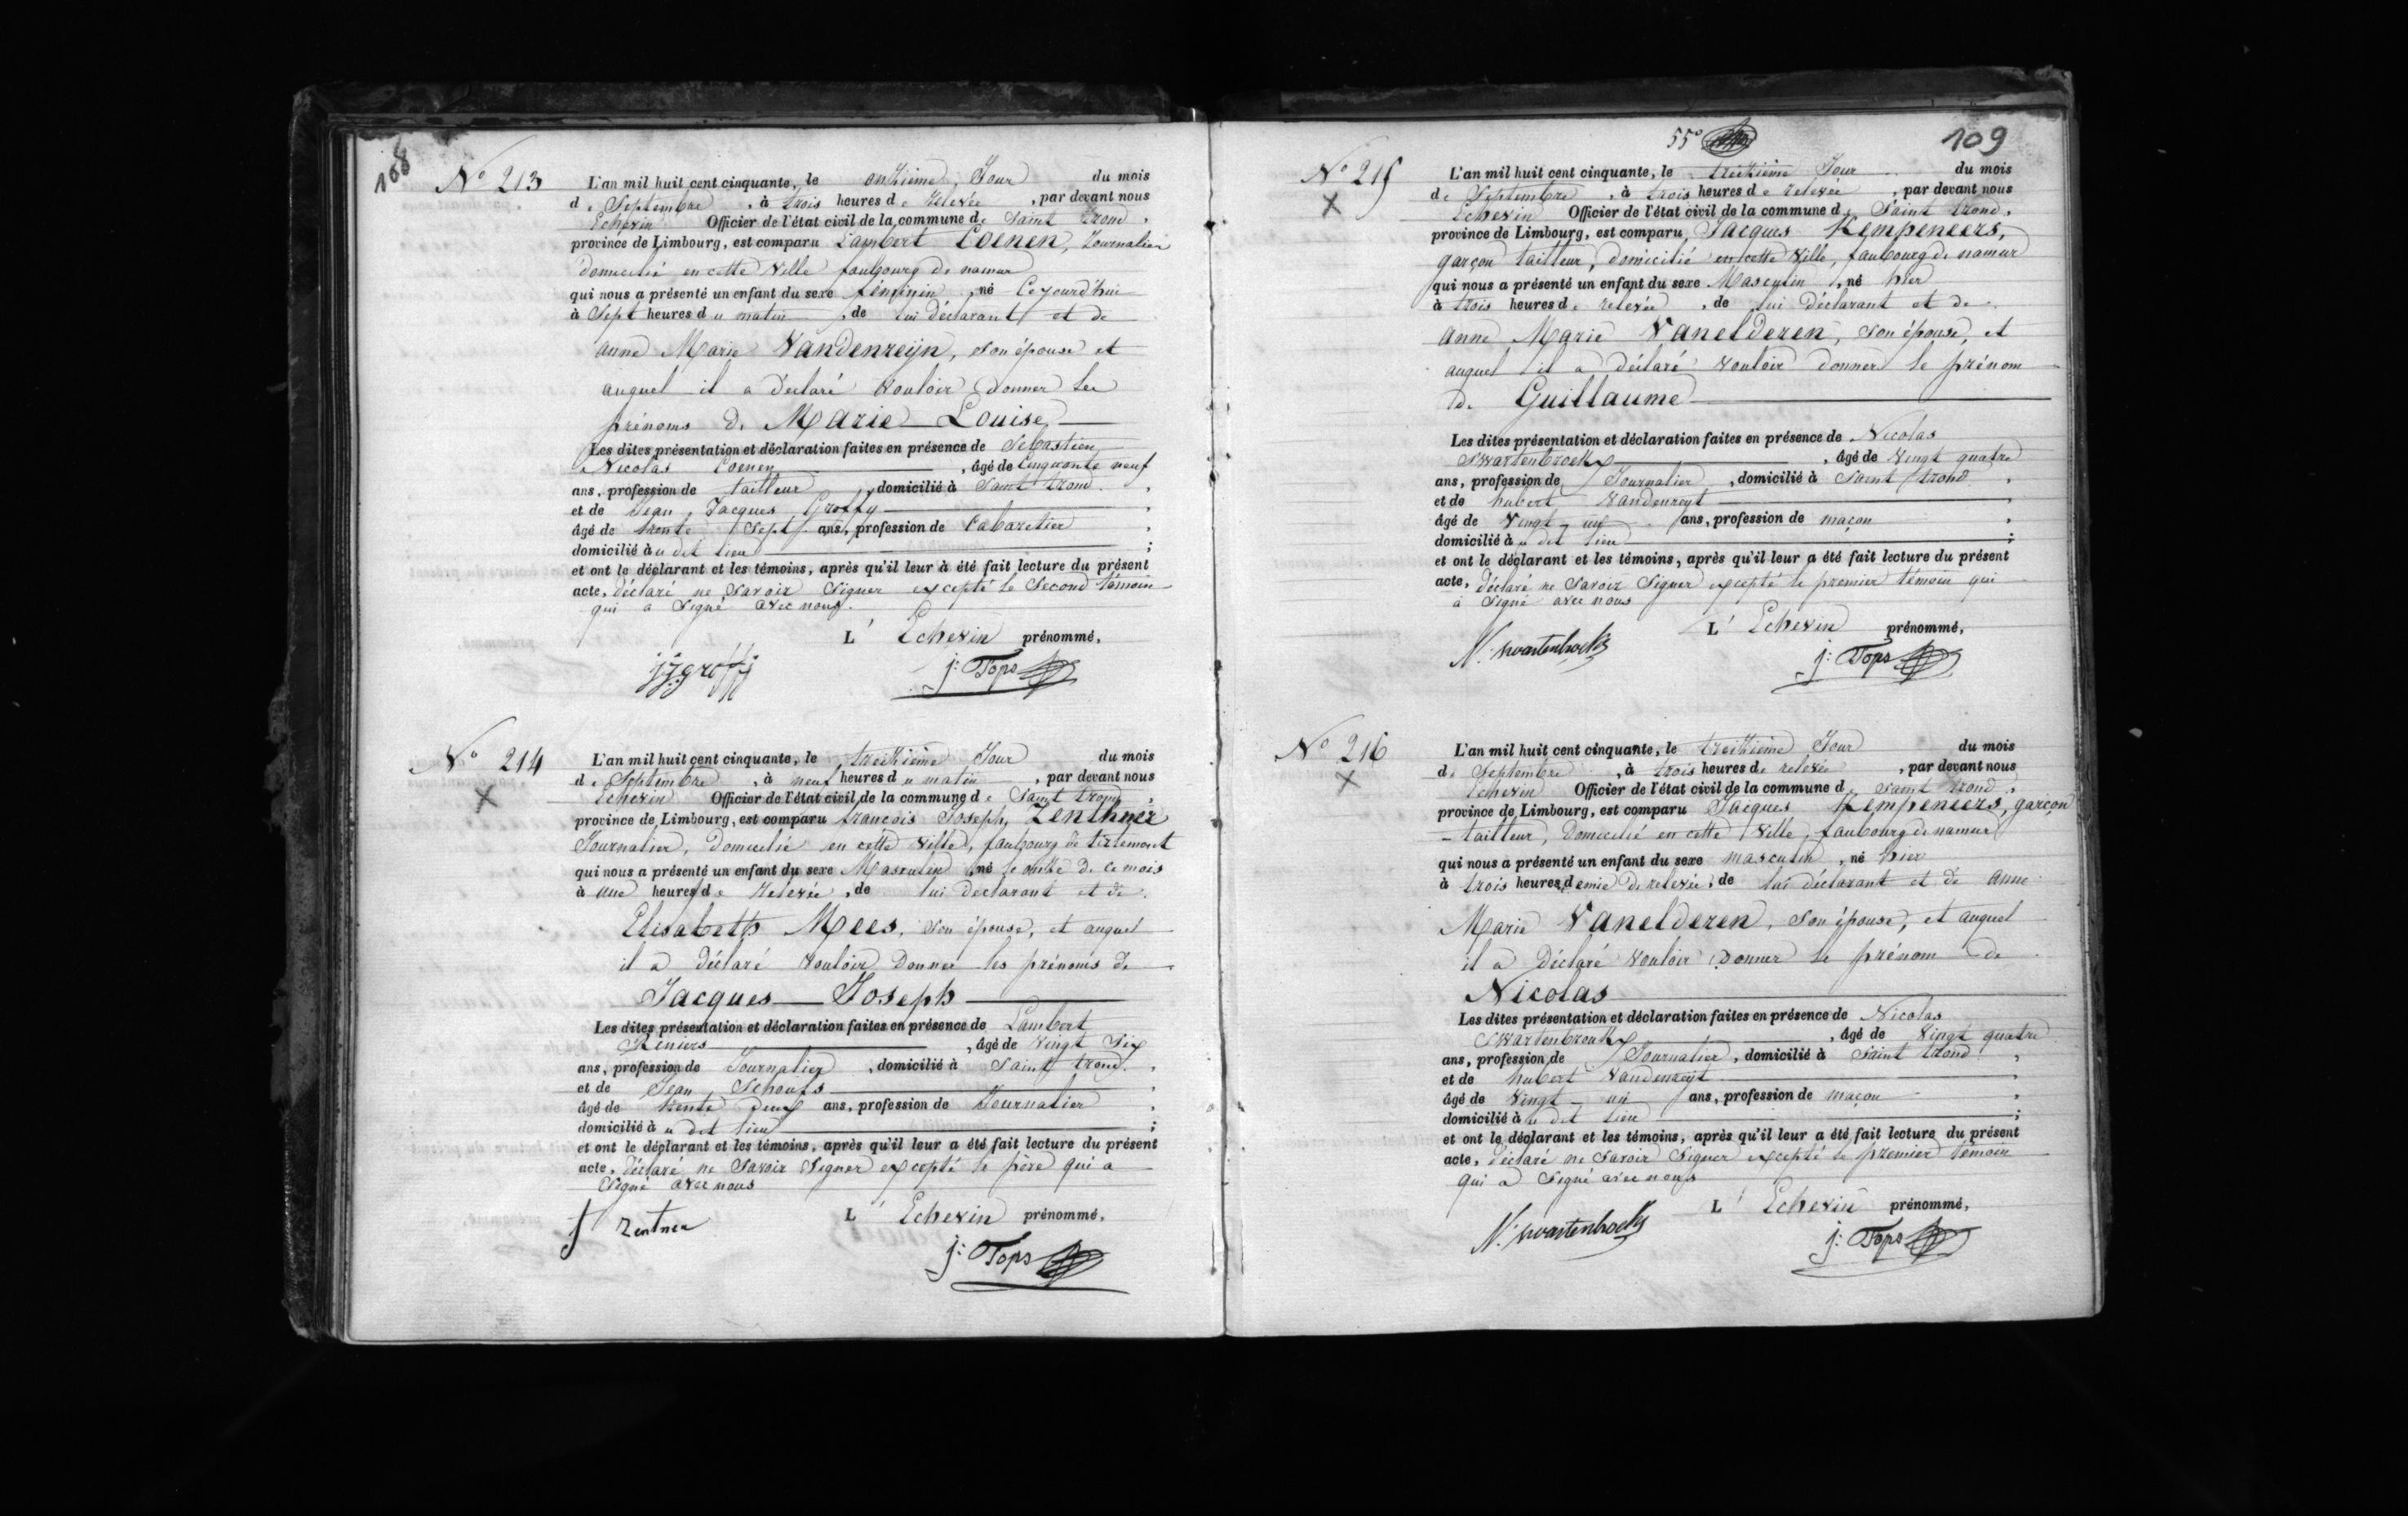 108
N° 213
L'an mil huit cent cinquante, le onzième Jour du mois
de Septembre, à trois heures de relevée, par devant nous
Echevin Officier de l'état civil de la commune de Saint trond,
province de Limbourg, est comparu Lambert Coenen, Journalier
domicilié en cette Ville faubourg de namur
qui nous a présenté un enfant du sexe féminin, né Cejourd'hui
à Sept heures du matin, de lui déclarant et de
anne Marie Vandenreijn, son épouse et
auquel il a déclaré vouloir donner les
prénoms de Marie Louise
Les dites présentation et déclaration faites en présence de Sebastien
Nicolas Coenen, âgé de Cinquante neuf
ans, profession de tailleur, domicilié à Saint trond,
et de Jean Jacques Groffy
âgé de trente Sept ans, profession de Cabaretier,
domicilié à u dit lieu;
et ont le déclarant et les témoins, après qu'il leur à été fait lecture du présent
acte, déclaré ne Savoir Signer excepté le Second témoin
qui a Signé avec nous.
L'Echevin prénommé,
jjgroffij j: Tops
N° 214
L'an mil huit cent cinquante, le treizième Jour du mois
de Septembre, à neuf heures du matin, par devant nous
Echevin Officier de l'état civil de la commune de Saint trond,
province de Limbourg, est comparu francois Joseph Zenthner
Journalier, domicilié en cette Ville, faubourg de tirlemont
qui nous a présenté un enfant du sexe Masculin né le onze de ce mois
à une heures de relevée, de lui déclarant et de
Elisabeth Mees, son épouse, et auquel
il a déclaré vouloir donner les prénoms de
Jacques Joseph
Les dites présentation et déclaration faites en présence de Lambert
Reniers, âgé de Vingt Six
ans, profession de Journalier, domicilié à Saint trond,
et de Jean Schoufs
âgé de trente deux ans, profession de Journalier,
domicilié à u dit lieu;
et ont le déclarant et les témoins, après qu'il leur a été fait lecture du présent
acte, déclaré ne Savoir Signer excepté le père qui a
Signé avec nous
L'Echevin prénommé,
f zentner j: Tops
55° 109
N° 215
L'an mil huit cent cinquante, le treizième Jour du mois
de Septembre, à trois heures de relevée, par devant nous
Echevin Officier de l'état civil de la commune de Saint trond,
province de Limbourg, est comparu Jacques Kempeneers,
garçon tailleur, domicilié en cette Ville, faubourg de namur
qui nous a présenté un enfant du sexe Masculin, né hier
à trois heures de relevée, de lui Déclarant et de
anne Marie Vanelderen, son épouse, et
auquel il a déclaré vouloir donner le prénom
de Guillaume
Les dites présentation et déclaration faites en présence de Nicolas
Swartenbroekx, âgé de Vingt quatre
ans, profession de Journalier, domicilié à Saint trond,
et de hubert Vandenreyt
âgé de Vingt un ans, profession de maçon,
domicilié à u dit lieu;
et ont le déclarant et les témoins, après qu'il leur a été fait lecture du présent
acte, déclaré ne Savoir Signer excepté le premier témoin qui
a Signé avec nous
L'Echevin prénommé,
N. swartenbroekx j: Tops
N° 216
L'an mil huit cent cinquante, le treizième Jour du mois
de Septembre, à trois heures de relevée, par devant nous
Echevin Officier de l'état civil de la commune de Saint trond,
province de Limbourg, est comparu Jacques Kempeneers, garçon
tailleur, domicilié en cette Ville, faubourg de namur
qui nous a présenté un enfant du sexe masculin, né hier
à trois heures demie de relevée, de lui déclarant et de anne
Marie Vanelderen, son épouse, et auquel
il a Déclaré vouloir Donner le prénom de
Nicolas
Les dites présentation et déclaration faites en présence de Nicolas
Swartenbroekx, âgé de Vingt quatre
ans, profession de Journalier, domicilié à Saint trond,
et de hubert Vandenreyt
âgé de Vingt un ans, profession de maçon,
domicilié à u dit lieu;
et ont le déclarant et les témoins, après qu'il leur a été fait lecture du présent
acte, déclaré ne Savoir Signer excepté le premier témoin
qui a Signé avec nous
L'Echevin prénommé,
N. swartenbroekx j: Tops